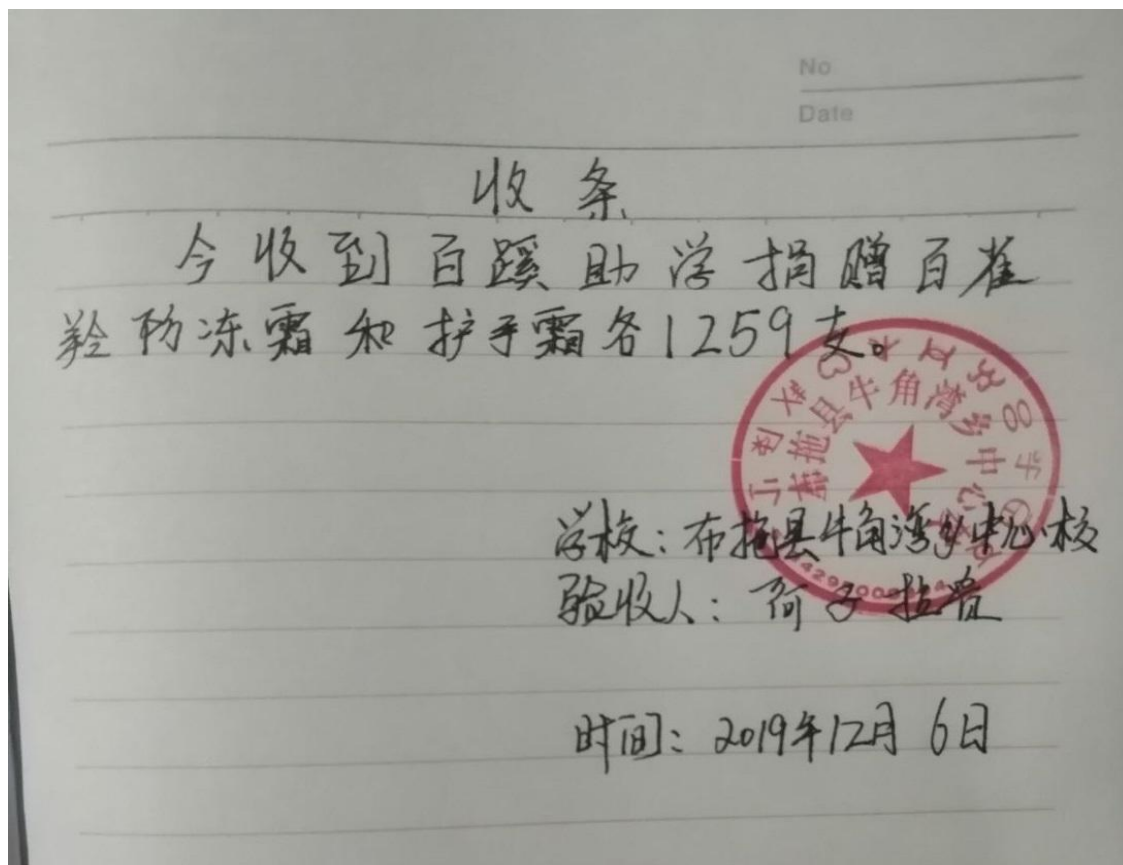 No
Date
收条
今收到百蹊助学捐赠百雀
羚防冻霜和护手霜各1259支。
布拖县牛角湾乡中心
学校：布拖县牛角湾乡中心校
验收人：阿子拉
时间：2019年12月6日